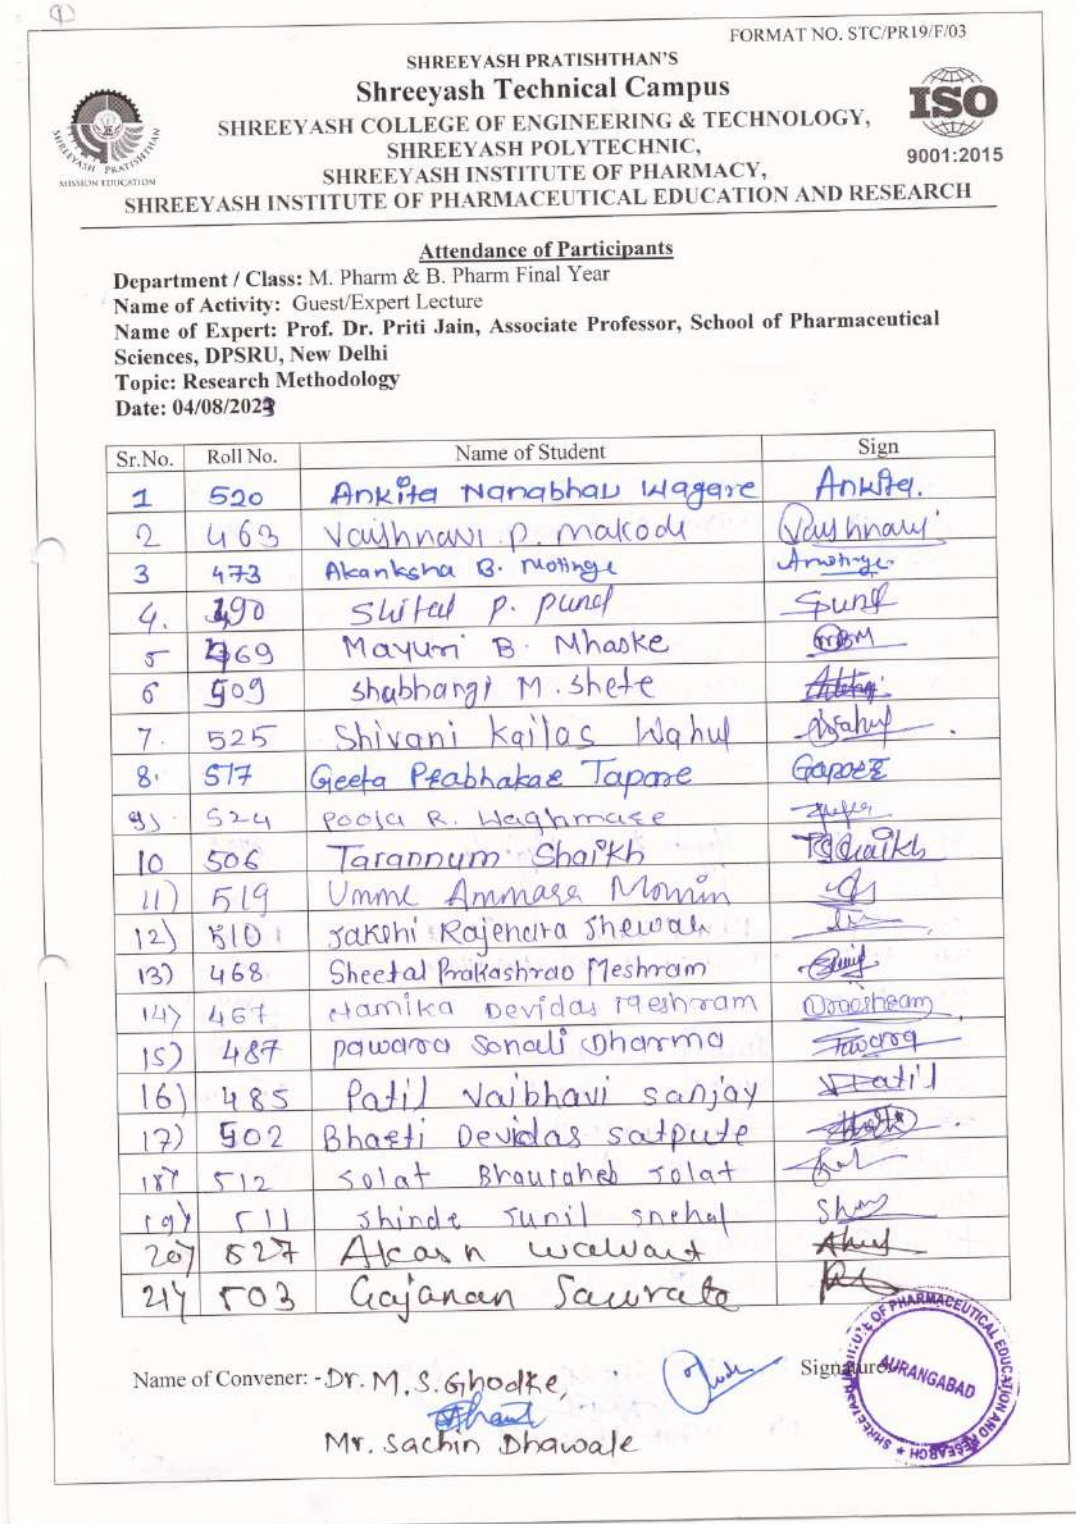 1
FORMAT NO. STC/PR19/F/03
SHREEYASH PRATISHTHAN'S
Shreeyash Technical Campus
SHREEYASH COLLEGE OF ENGINEERING & TECHNOLOGY,
SHREEYASH POLYTECHNIC,
SHREEYASH INSTITUTE OF PHARMACY,
SHREEYASH INSTITUTE OF PHARMACEUTICAL EDUCATION AND RESEARCH
SHREEYASH PRATISHTHAN
MISSION EDUCATION
ISO
9001:2015
Attendance of Participants
Department / Class: M. Pharm & B. Pharm Final Year
Name of Activity: Guest/Expert Lecture
Name of Expert: Prof. Dr. Priti Jain, Associate Professor, School of Pharmaceutical
Sciences, DPSRU, New Delhi
Topic: Research Methodology
Date: 04/08/2023
Sr.No. Roll No. Name of Student Sign
1 520 Ankita Nanabhau Wagare Ankita.
2 463 Vaishnavi P. Makode Vaishnavi
3 473 Akanksha B. Motinge Amotinge
4. 490 Shital P. Pund Spund
5 469 Mayuri B. Mhaske MBM
6 509 Shubhangi M. Shete
7. 525 Shivani Kailas Wahul
8. 517 Geeta Prabhakar Tapare
9) 524 Pooja R. Waghmare
10 506 Tarannum Shaikh TGShaikh
11) 519 Umme Ammara Momin
12) 510 Sakshi Rajendra Shewale
13) 468 Sheetal Prakashrao Meshram
14) 467 Namika Devidas Meshram
15) 487 Pawara Sonali Dharma Pawara
16) 485 Patil Vaibhavi Sanjay VPatil
17) 502 Bharti Devidas Satpute
18) 512 Solat Bhausaheb Solat
19) 511 Shinde Sunil Snehal
20) 527 Akash
21) 503 Gajanan
Name of Convener: - Dr. M. S. Ghodke, Signature
Mr. Sachin Dhawale
SHREEYASH INSTITUTE OF PHARMACEUTICAL EDUCATION AND RESEARCH
AURANGABAD